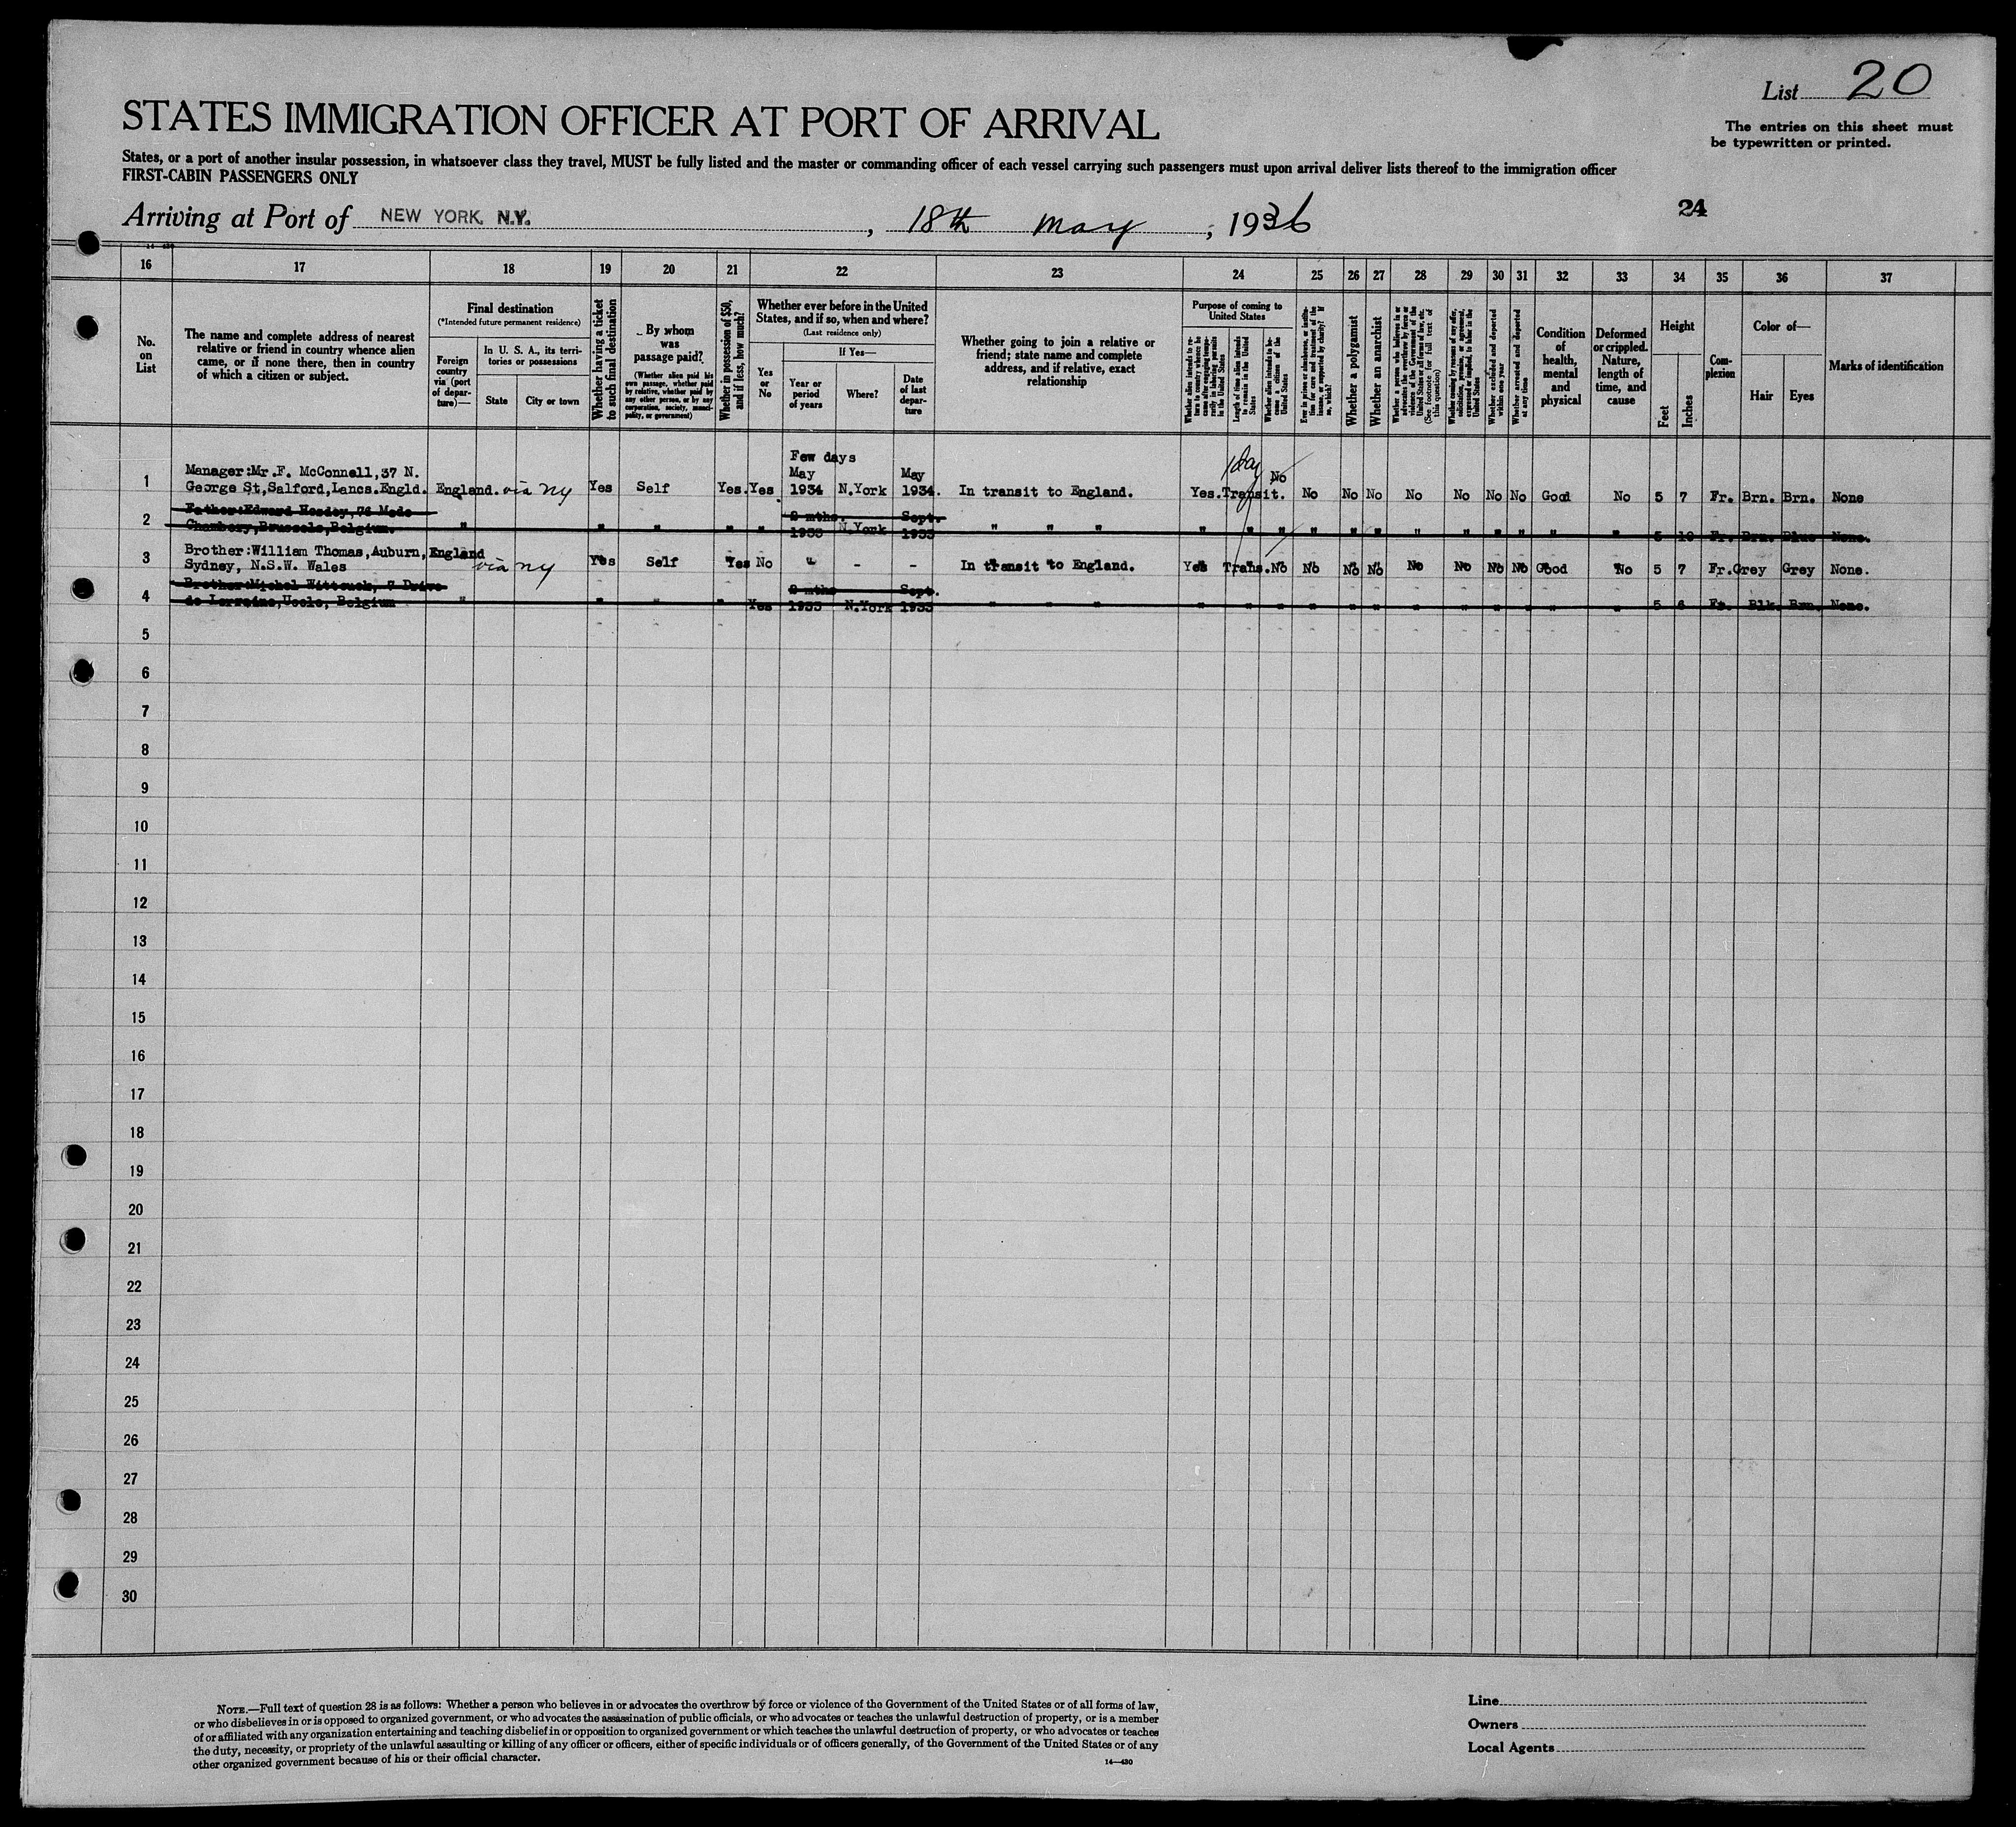 List 20
STATES IMMIGRATION OFFICER AT PORT OF ARRIVAL
The entries on this sheet must
be typewritten or printed.
States, or a port of another insular possession, in whatsoever class they travel, MUST be fully listed and the master or commanding officer of each vessel carrying such passengers must upon arrival deliver lists thereof to the immigration officer
FIRST-CABIN PASSENGERS ONLY
24
Arriving at Port of NEW YORK, N.Y. , 18th May , 1936
16 17 18 19 20 21 22 23 24 25 26 27 28 29 30 31 32 33 34 35 36 37
No.
on
List
The name and complete address of nearest
relative or friend in country whence alien
came, or if none there, then in country
of which a citizen or subject.
Final destination
(*Intended future permanent residence)
Foreign
country
via (port
of depar-
ture)—
In U. S. A., its terri-
tories or possessions
State
City or town
Whether having a ticket
to such final destination
By whom
was
passage paid?
(Whether alien paid his
own passage, whether paid
by relative, whether paid by
any other person, or by any
corporation, society, munici-
pality, or government)
Whether in possession of $50,
and if less, how much?
Whether ever before in the United
States, and if so, when and where?
(Last residence only)
Yes
or
No
If Yes—
Year or
period
of years
Where?
Date
of last
depar-
ture
Whether going to join a relative or
friend; state name and complete
address, and if relative, exact
relationship
Purpose of coming to
United States
Length of time alien intends
to remain in the United
States
Whether alien intends to be-
come a citizen of the
United States
Whether a polygamist
Whether an anarchist
(See footnote for full text of
this question)
Whether excluded and deported
within one year
Whether arrested and deported
at any time
Condition
of
health,
mental
and
physical
Deformed
or crippled.
Nature,
length of
time, and
cause
Height
Feet
Inches
Com-
plexion
Color of—
Hair
Eyes
Marks of identification
1 day
Few days
Manager:Mr.F. McConnell,37 N. May May No
1 George St,Salford,Lancs.Engld. England. via NY Yes Self Yes. Yes 1934 N.York 1934. In transit to England. Yes. Transit. No No No No No No No Good No 5 7 Fr. Brn. Brn. None
Father:Edward 76 2 mths. Sept.
2 Chambery,Brussels,Belgium. " " " " " 1933 N.York 1933 " " " " " " " " " " " " " " " 5 10 Fr. Brn. Blue None.
Brother:William Thomas,Auburn, England
3 Sydney, N.S.W. Wales via NY Yes Self Yes No " - - In transit to England. Yes Trans. No No No No No No No No Good No 5 7 Fr. Grey Grey None.
Brother:Michel Wittouck, 7 Drive 2 mths Sept.
4 de Lorraine,Uccle, Belgium " " " " Yes 1933 N.York 1933 " " " " " " " " " " " " " " " 5 6 Fr. Blk. Brn. None.
5
6
7
8
9
10
11
12
13
14
15
16
17
18
19
20
21
22
23
24
25
26
27
28
29
30
NOTE.—Full text of question 28 is as follows: Whether a person who believes in or advocates the overthrow by force or violence of the Government of the United States or of all forms of law,
or who disbelieves in or is opposed to organized government, or who advocates the assassination of public officials, or who advocates or teaches the unlawful destruction of property, or is a member
of or affiliated with any organization entertaining and teaching disbelief in or opposition to organized government or which teaches the unlawful destruction of property, or who advocates or teaches
the duty, necessity, or propriety of the unlawful assaulting or killing of any officer or officers, either of specific individuals or of officers generally, of the Government of the United States or of any
other organized government because of his or their official character.
14—430
Line
Owners
Local Agents